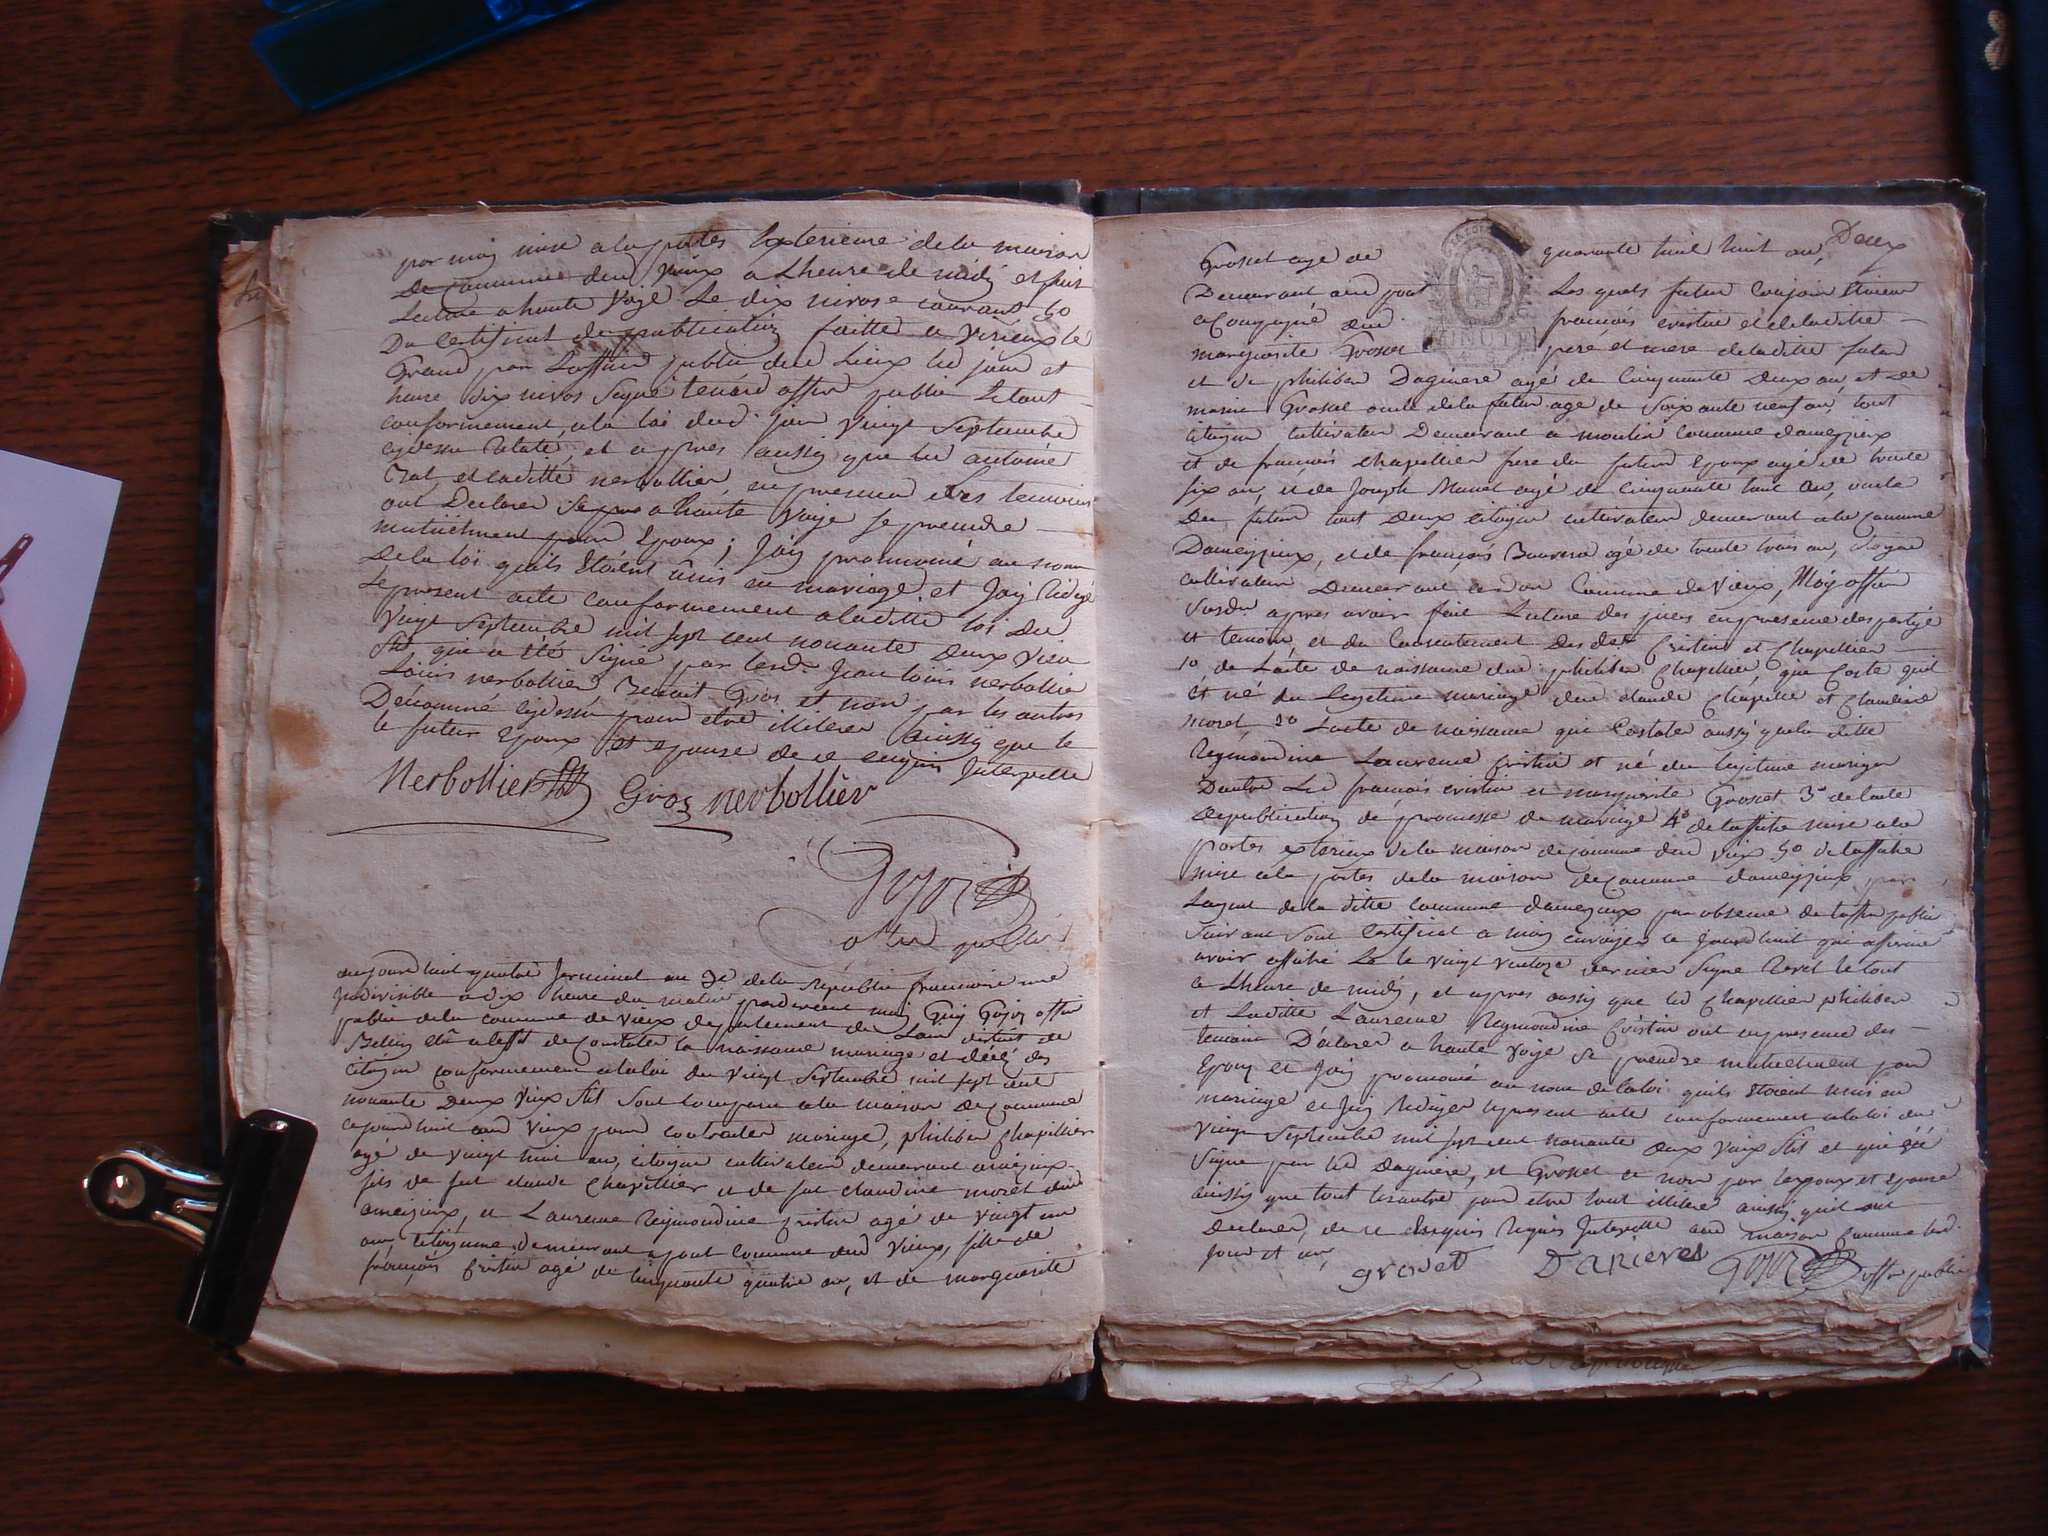 par moy mise a la portes Exterieure de la maison
De Commune dud vieux a Lheure de midy et fait
Lecture a haute Voye Le dix nivose courant 60
Du Certificat de publication faitte a virieux le
Grand par Lofficier public dud Lieux led jour et
heure dix nivos Signé tenard officier public Le tout
conformement a la loi dud jour Vingt Septembre
cydessu relaté, et appres aussy que led antoine
et laditte nerbollier en presence des temoins
ont Declarer a haute Voye Se prendre
mutuelment pour Epoux; Jay prononcé au nom
De la loi quils Etoient Unis en mariage et Jay Rédigé
Le present acte conformement a laditte loi Du
Vingt Septembre mil Sept cent nonante Deux vieu
Stil qui a été Signé par lesd. Jean Louis nerbollier
Louis nerbollier Benoit Gros et non par les autres
Dénommé cydessu pour etre illiterer ainssy que le
le futur Epoux et Epouse de ce enquis Interpellé
Nerbollier Gros nerbollier
Gojoz
officier public
aujourdhuit quatre Jerminal an 3e de la Republic francoise une
Indivisible a dix heure du matin pardevant moy Guy Gojoz officier
public de la commune de vieux departement de Lain district de
Belley elu a leffet de Constater la naissance mariage et décé des
Citoyen Conformement a la loi du vingt Septembre mil Sept cent
nonante Deux vieux Stil Sont comparu a la maison De Commune
cejourdhuit aud vieux pour contracter mariage, philiber Chapellier
agé de vingt huit an, citoyen cultivateur demeurant amezieux
fils de fut claude Chapellier et de fut claudine moret dud
ameizieux, et Laurence Reymondine Cristin agé de vingt un
an Citoyenne Demeurant a pont Commune dud Vieux, fille de
françois Cristin agé de Cinquante quatre an, et de marguerite
Grosset agé de quarante huit an, Deux
Demeurant aud pont Les quels futur Conjoin Etoient
acompagné dud françois cristin et de laditte
marguerite Grosset pere et mere de laditte futur
et de philiber Daginere agé de Cinquante Deux an, et de
marie Grosset oncle de la futur age de Soixante neuf an, tout
citoyen cultivateur Demeurant a moulin commune dameizieux
et de françois chapellier frere du futur Epoux agé de trente
six an, et de Joseph Muret agé de Cinquante an, oncle
Du futur tout Deux citoyen cultivateur demeurant a la Commune
Dameizieux, et de françois agé de trente trois an, citoyen
cultivateur Demeurant a don Commune de Vieux, Moy officier
Susdit appres avoir fait Lecture des pieces en presence des partyé
et temoin, et du Consentement Desdet Cristin et Chapellier
10 de Lacte de naissance dud philiber Chapellier, que Coste quil
et né du Legetime mariage dud claude Chapelle et Claudine
moret, 20 Lacte de naissance qui Costate aussy que la ditte
Reymondine Laurence Cristin et né du legitime mariage
Dentre Led francois cristin et marguerite Grosset 3e de lacte
de publication de promesse de mariage 4e de laffiche mise a la
portes exterieux de la maison de commune dud vieux 5e de laffiche
mise a la portes de la maison de Commune dameizieux par
Lagent de la ditte commune dameizieux par absence de lofficier public
Suivant Sont Certificat a moy envoyer ce jourdhuit qui afferme
avoir affiché Le le vingt ventoze dernier Signe revet le tout
a Lheure de midy, et appres aussy que led Chapellier philiber
et Laditte Laurence Reymondine Cristin ont en presence des
temoin Déclarer a haute Voye Se prendre mutuelment pour
Epoux et Jay prononcé au nom de la loi quils Etoient Unis en
mariage et Jay Rediger le present acte conformement a la loi du
Vingt Septembre mil Sept cent nonante deux vieux Stil et qui a été
Signe par led Daginere, et Grosset et non par lépoux et epouse
ainssy que tout les autre pour etre tout illitere ainssy quil ont
Declarer, de ce Enquis Requis Interpellé aud maison Commune led.
jour et an,
groset Daniere Gojoz officier public